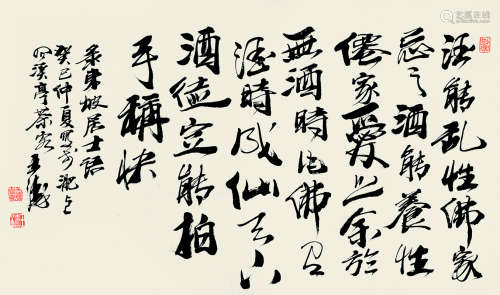 酒能乱性佛家
忌之酒能養性
僊家愛之余於
無酒時作佛有
酒時成仙天下
酒徒定能拍
手稱快
录東坡居士語
癸巳仲夏